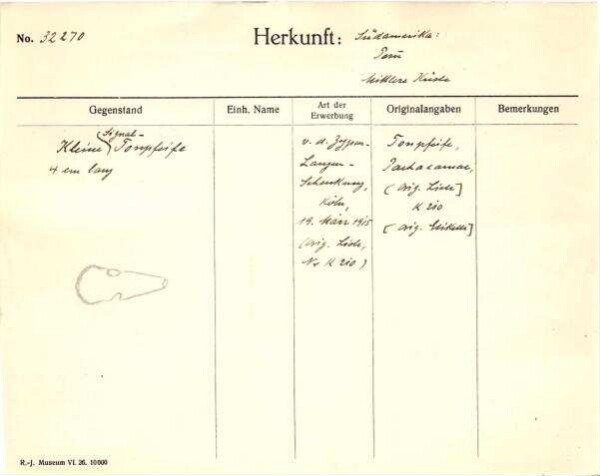 No. 32270
Herkunft: Südamerika:
Perú
Mittlere Küste
Gegenstand
Einh. Name
Art der
Erwerbung
Originalangaben
Bemerkungen
(Signal-
Kleine Tonpfeife
4 cm lang
v. d. Zypen-
Langen-
Schenkung,
Köln,
19. März 1915
(Orig. Liste,
Nr K 210)
Tonpfeife,
Pachacamac,
(Orig. Liste]
K 210
[Orig. Etikette]
R.-J. Museum VI. 26. 10000